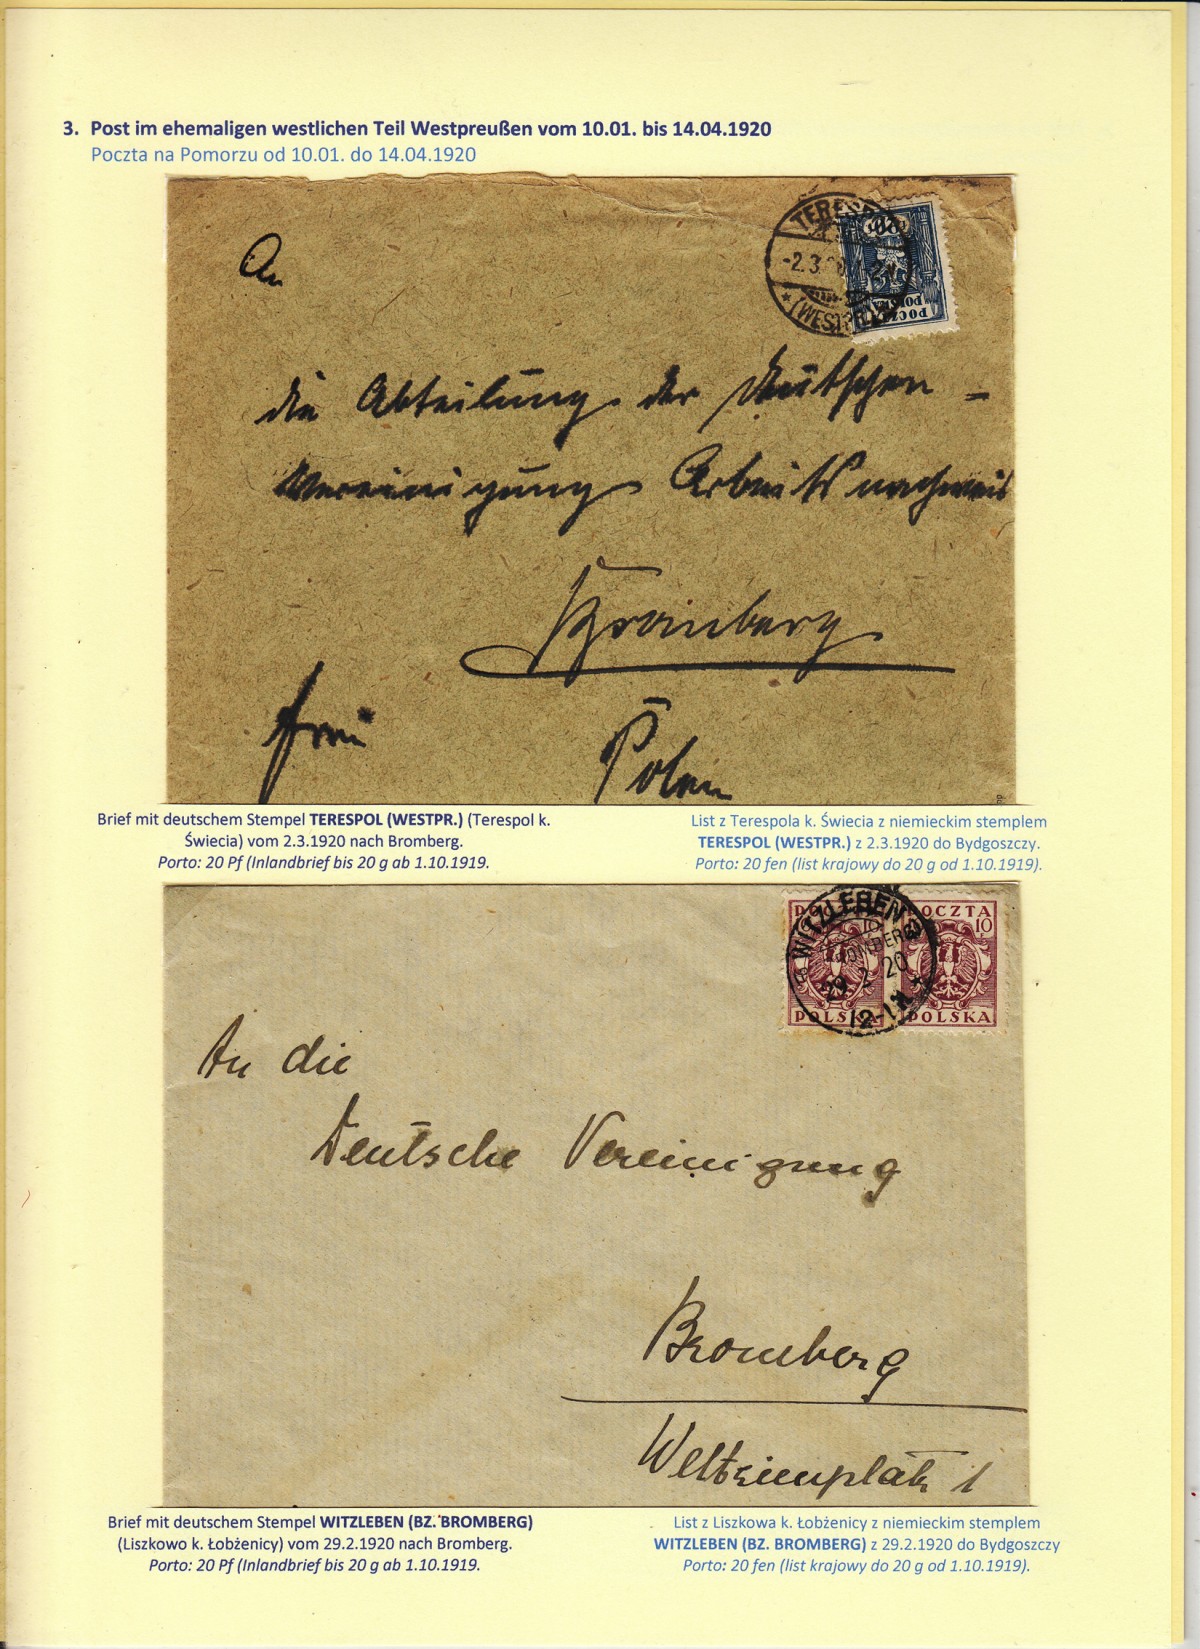 3. Post im ehemaligen westlichen Teil Westpreußen vom 10.01. bis 14.04.1920
Poczta na Pomorzu od 10.01. do 14.04.1920
TERESP
-2.3.
(WESTPR.)
20
POCZTA
POLSKA
An
die Abteilung der Deutschen-
Vereinigung Arbeitsnachweis
Bromberg
Frei
Polen
Brief mit deutschem Stempel TERESPOL (WESTPR.) (Terespol k.
Świecia) vom 2.3.1920 nach Bromberg.
Porto: 20 Pf (Inlandbrief bis 20 g ab 1.10.1919.
List z Terespola k. Świecia z niemieckim stemplem
TERESPOL (WESTPR.) z 2.3.1920 do Bydgoszczy.
Porto: 20 fen (list krajowy do 20 g od 1.10.1919).
POCZTA
10
POLSKA
POCZTA
10
POLSKA
WITZLEBEN
(BZ. BROMBERG)
29 2 20
12-1N
An die
Deutsche Vereinigung
Bromberg
Weltzienplatz 1
Brief mit deutschem Stempel WITZLEBEN (BZ. BROMBERG)
(Liszkowo k. Łobżenicy) vom 29.2.1920 nach Bromberg.
Porto: 20 Pf (Inlandbrief bis 20 g ab 1.10.1919.
List z Liszkowa k. Łobżenicy z niemieckim stemplem
WITZLEBEN (BZ. BROMBERG) z 29.2.1920 do Bydgoszczy
Porto: 20 fen (list krajowy do 20 g od 1.10.1919).